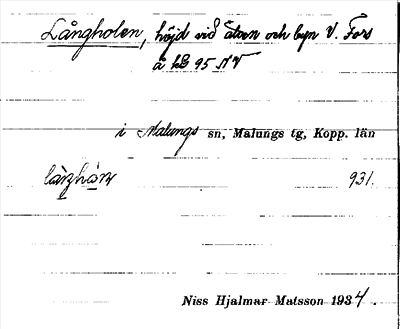 Långholen, höjd vid älven och byn V. Fors
å kb 95 NV
i Malungs sn, Malungs tg, Kopp. län
931.
Niss Hjalmar Matsson 1934.